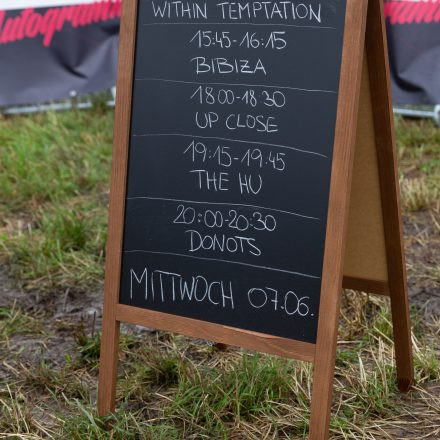 Autogramm
WITHIN TEMPTATION
15:45-16:15
BIBIZA
18:00-18:30
UP CLOSE
19:15-19:45
THE HU
20:00-20:30
DONOTS
MITTWOCH 07.06.